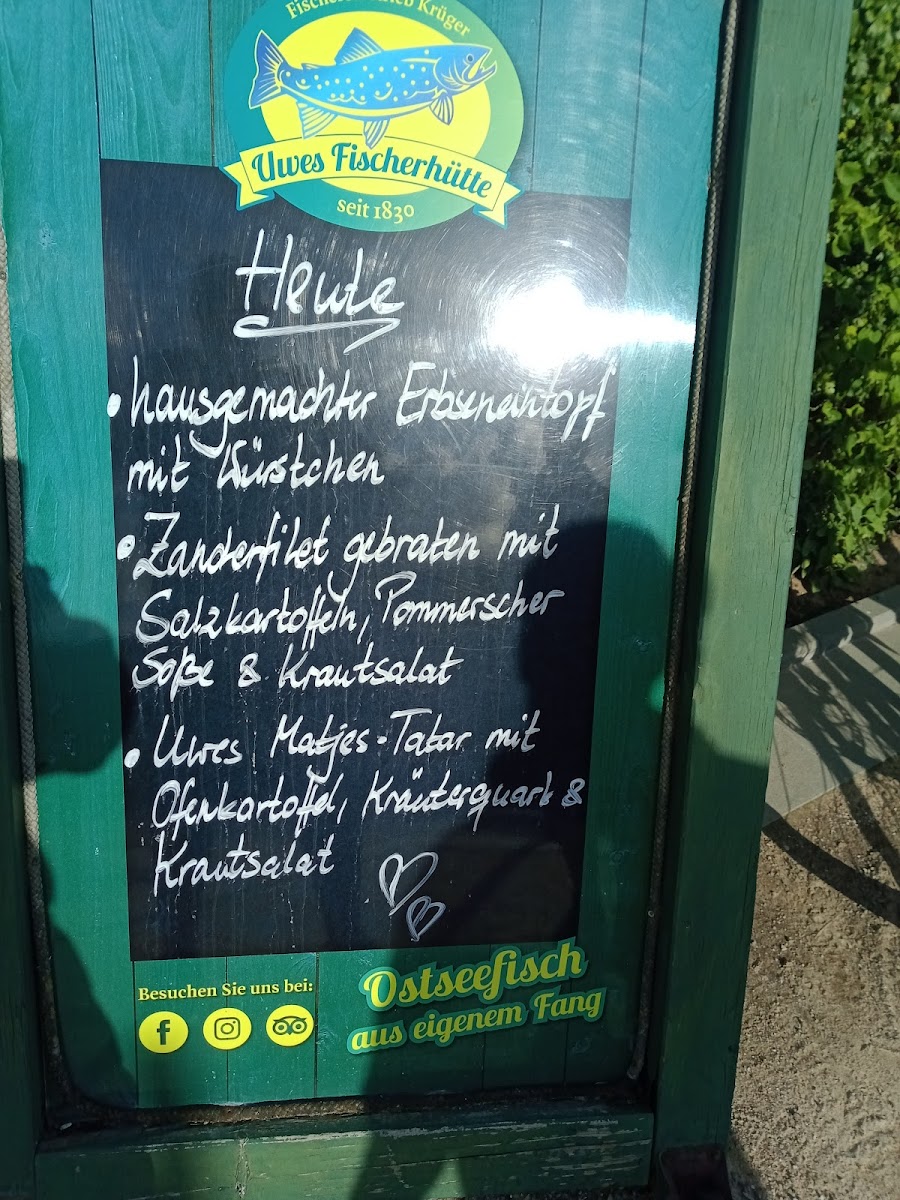 Krüger
Uwes Fischerhütte
seit 1830
Heute
• hausgemachter Erbseneintopf
mit Würstchen
• Zanderfilet gebraten mit
Salzkartoffeln, Pommerscher
Soße & Krautsalat
• Uwes Matjes-Tatar mit
Ofenkartoffel, Kräuterquark &
Krautsalat
Besuchen Sie uns bei:
Ostseefisch
aus eigenem Fang